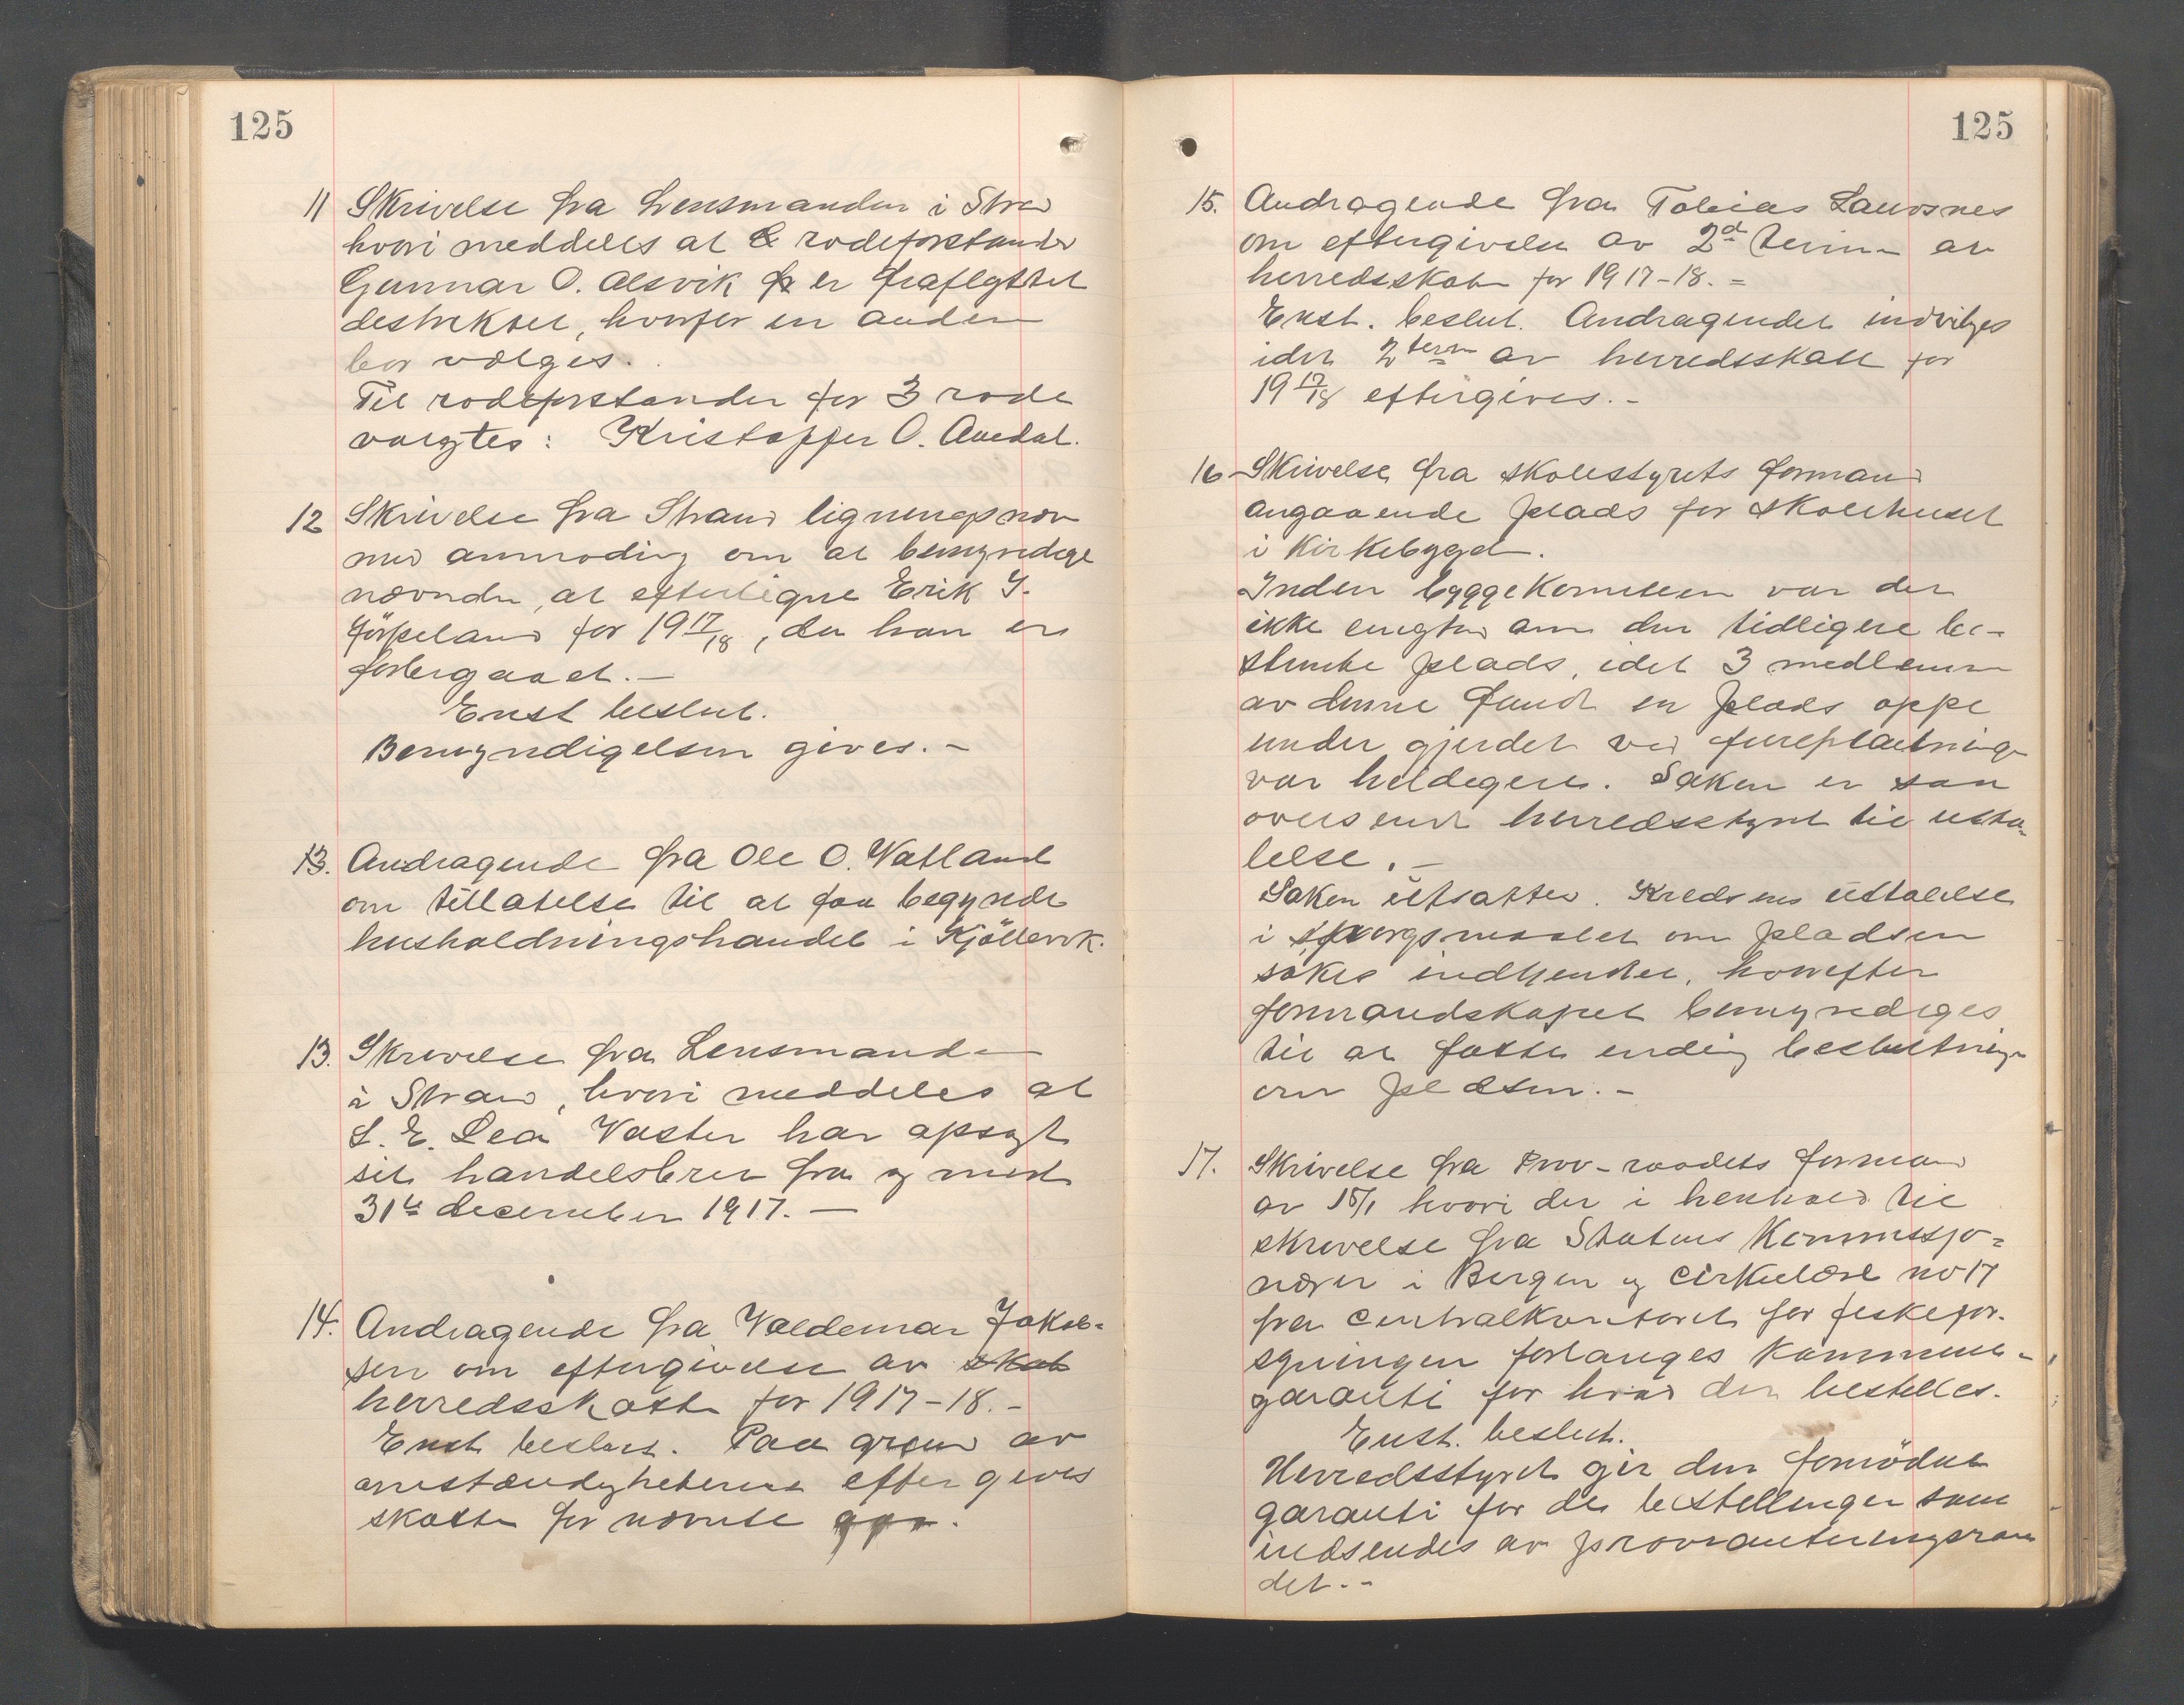 125
11 Skrivelse fra Lensmanden i Strand
hvori meddeles at rodeforstander
Gunnar O. Alsvik er fraflyttet
destriktet, hvorfor en anden
bør vælges.
Til rodeforstander for 3 rode
valgtes: Kristoffer O. Auedal.
12 Skrivelse fra Strand ligningsnevn
med anmoding om at bemyndige
nævnden at efterligne Erik
Jörpeland for 19 17/18, da han er
forbigaaet.—
Enst beslut.
Bemyndigelsen gives.—
13. Andragende fra Ole O. Vatland
om tillatelse til at faa begynde
husholdningshandel i Kjöllevik.
13. Skrivelse fra Lensmanden
i Strand, hvori meddeles at
L. E. Lea Vaster har opsagt
sit handelsbrev fra og med
31te december 1917.—
14. Andragende fra Valdemar Jakob-
sen om eftergivelse av skat
herredsskatten for 1917-18.-
Enst beslut. Paa grund av
omstændigheterne eftergives
skatten for nævnte aar.
125
15. Andragende fra Tobias Lauvsnes
om eftergivelse av 2den termin av
herredsskaten for 1917-18.=
Enst. beslut. Andragendet indvilges
idet 2 term av herredsskatt for
19 17/18 eftergives.-
16 Skrivelse fra skolestyrets formand
angaaende plads for skolehuset
i Kirkebygd.
Inden byggekomiteen var der
ikke enighed om den tidligere be-
stemte plads, idet 3 medlemmer
av denne fandt en plads oppe
under gjerdet ved fureplantningen
var heldigere. Saken er saa
oversendt herredsstyret til utta-
lelse.—
Saken utsattes. Kredsens uttalelse
i spörgsmaalet om pladsen
søkes indhentet, hvorefter
formandskapet bemyndiges
til at fatte endelig beslutning
om pladsen.-
17. Skrivelse fra Prov-raadets formand
av 15/1 hvori der i henhold til
skrivelse fra Statens Kommissjo=
nær i Bergen og cirkulære no 17
fra centralkontoret for fiskefor-
syningen forlanges Kommune-
garanti for hvad der bestilles.
Enst. beslut.
Herredsstyret gir den fornödne
garanti for de bestellinger som
indsendes av provianteringsraa
det.-